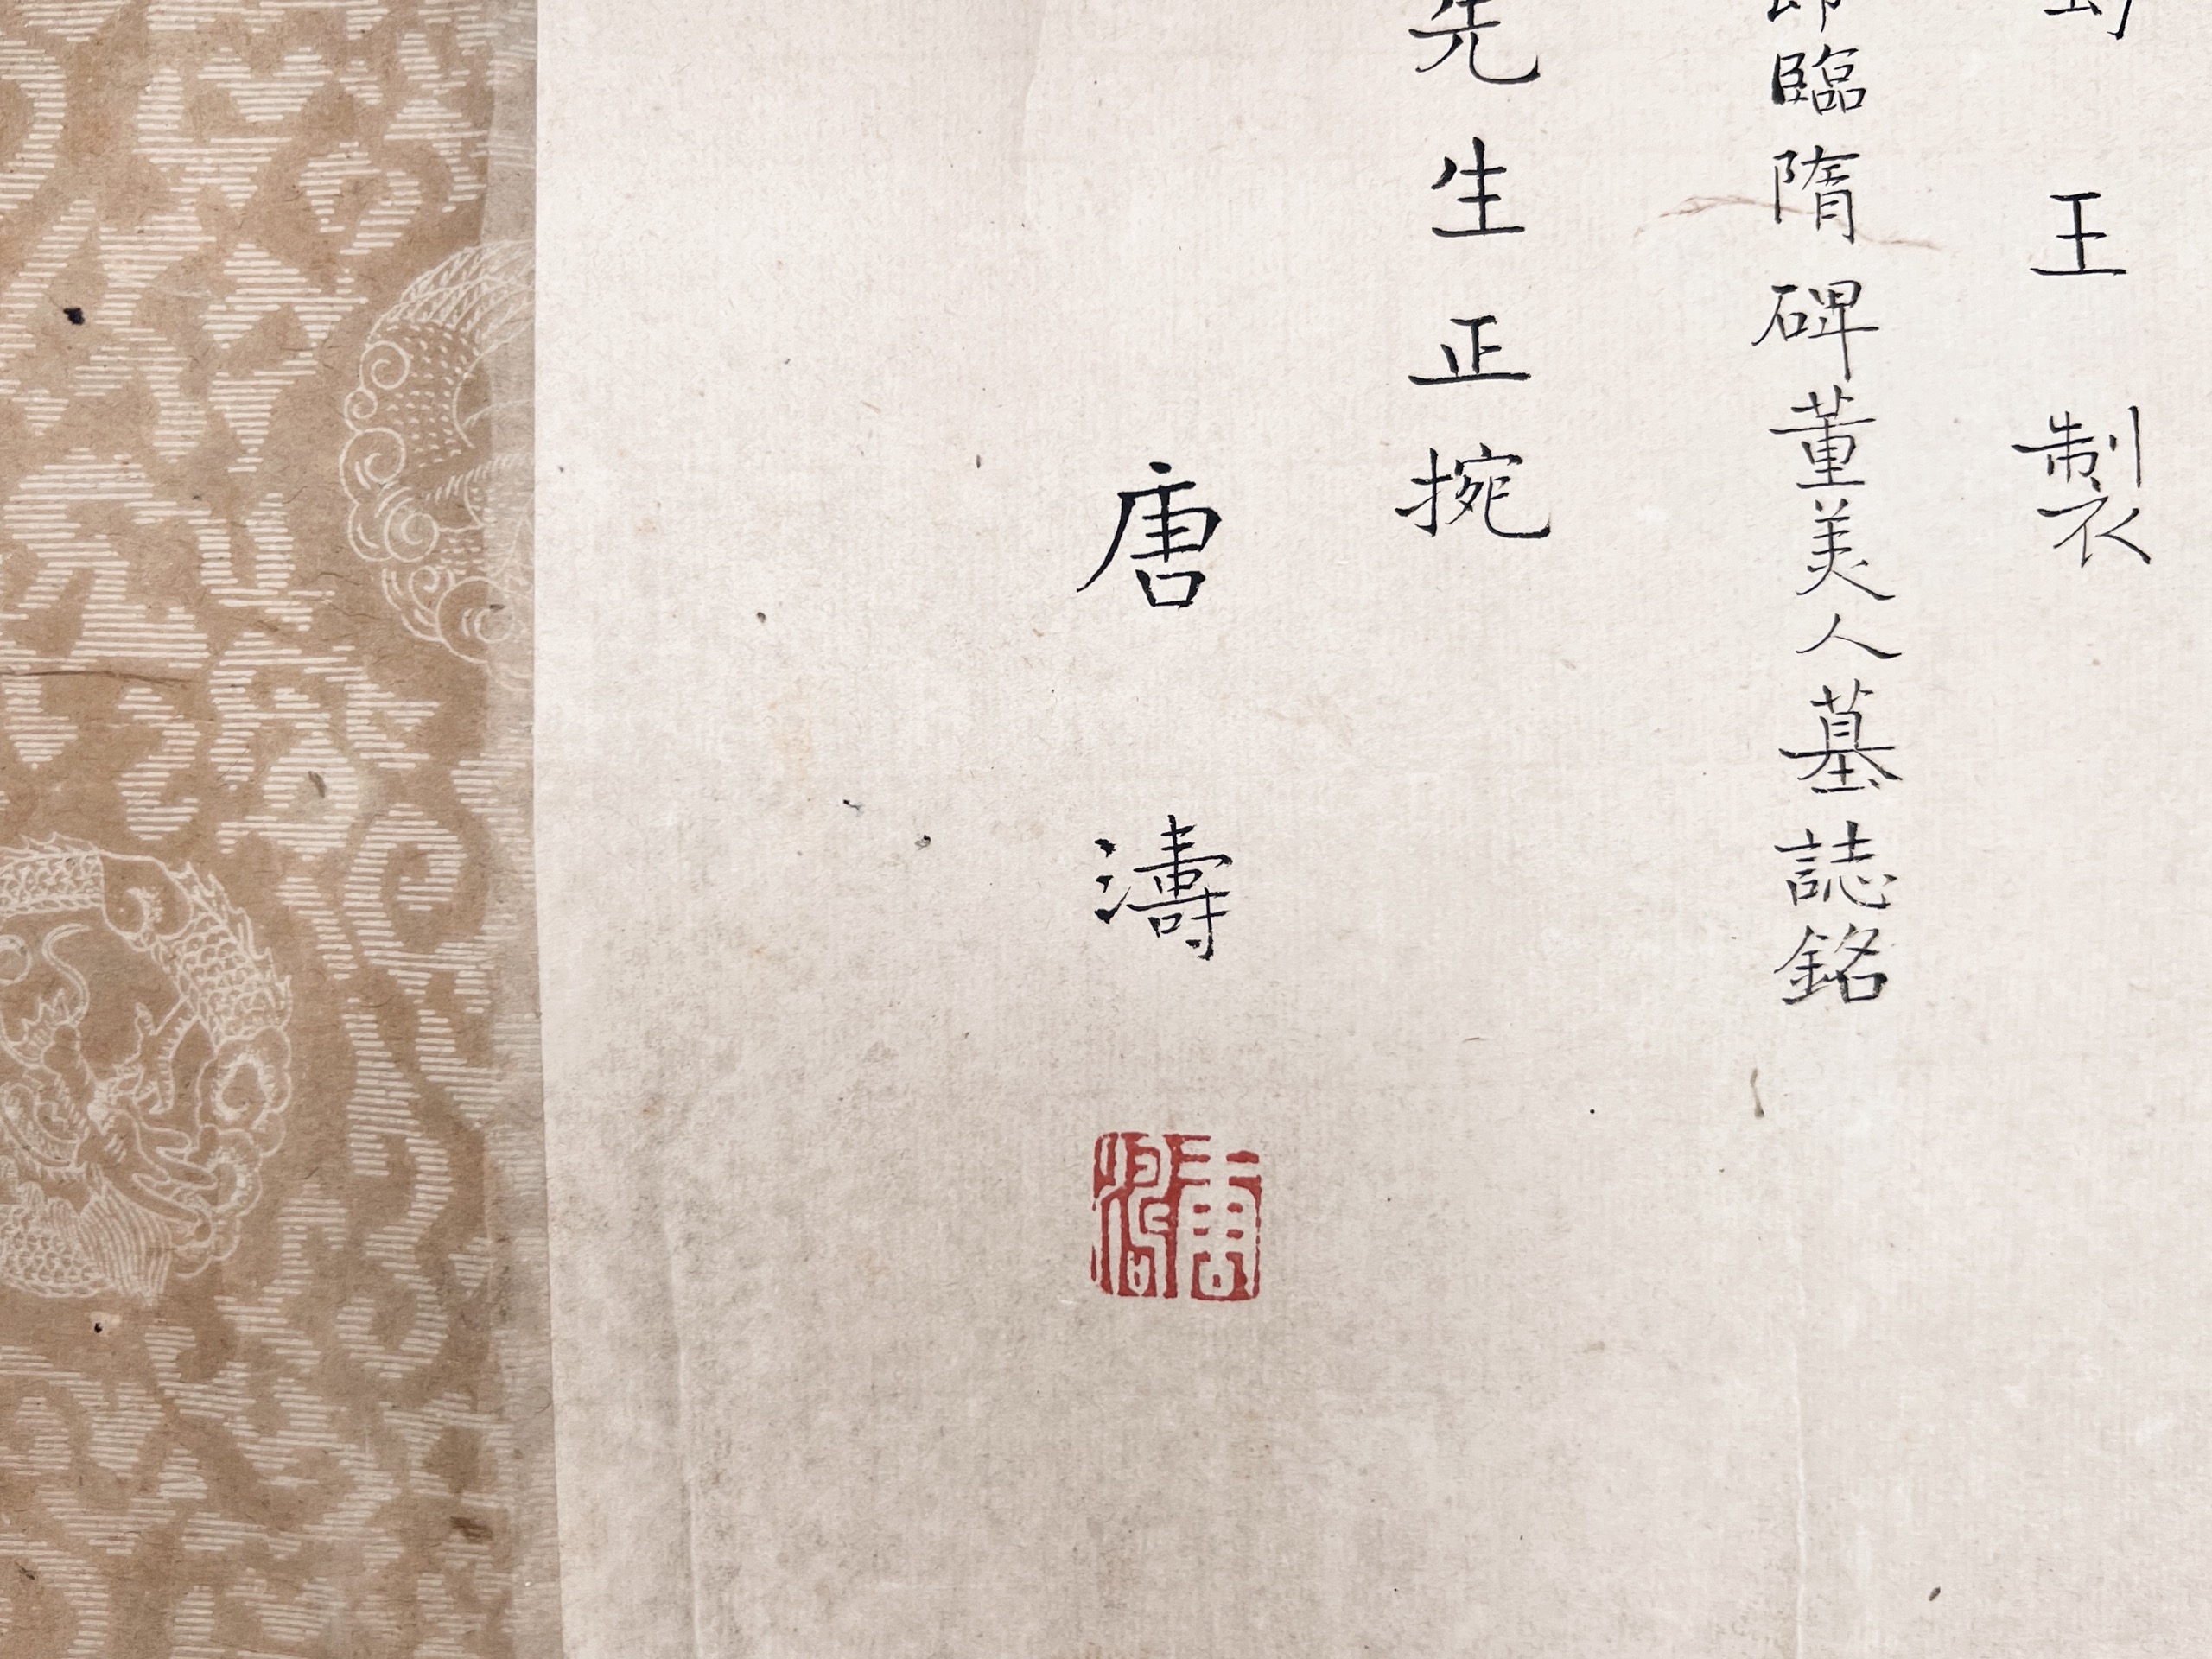 王製
臨隋碑董美人墓誌銘
先生正捥
唐濤
唐濤